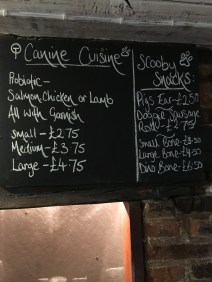 Canine Cuisine
Probiotic -
Salmon, Chicken or Lamb
All with Garnish
Small - £2.75
Medium - £3.75
Large - £4.75
Scooby
Snacks:
Pigs Ear - £2.50
Doggie Sausage
Roll - £2.75
Small Bone - £3.50
Large Bone - £4.50
Dino Bone - £6.50